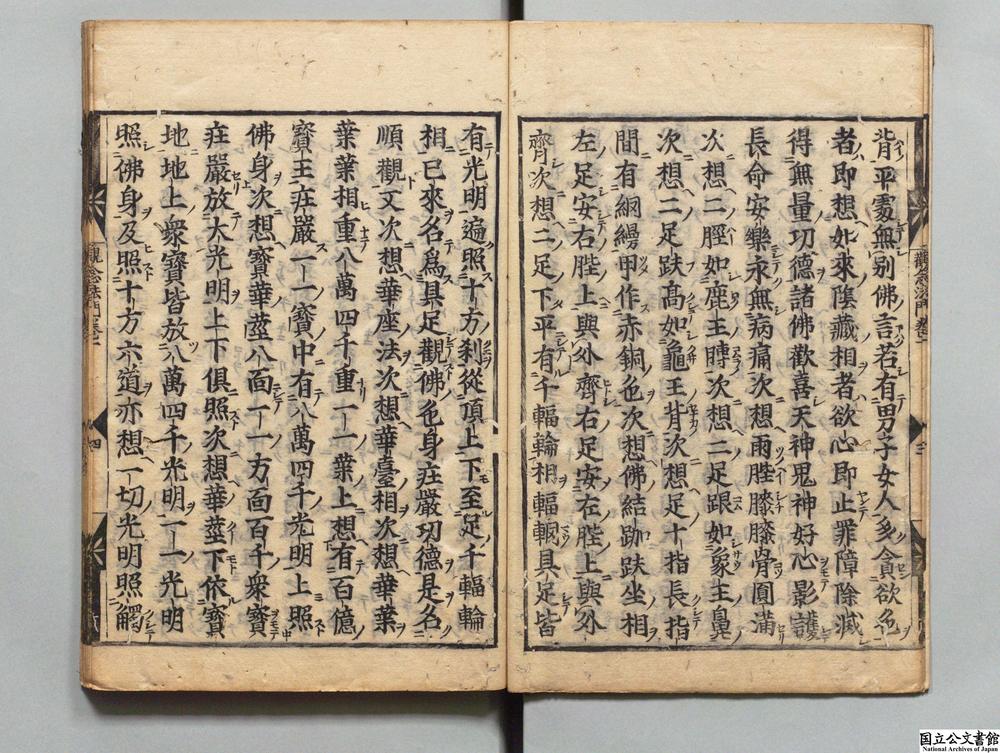 背平處無別佛言若有男子女人多貪欲色
者即想如來陰藏相者欲心即止罪障除滅
得無量功德諸佛歡喜天神鬼神好心影護
長命安樂永無病痛次想兩䏶膝膝骨圓滿
次想二脛如鹿王䏝次想二足跟如象王鼻
次想二足趺高如龜王背次想足十指長指
間有網縵甲作赤銅色次想佛結跏趺坐相
左足安右䏶上與外齊右足安左䏶上與外
齊次想二足下平有千輻輪相輻輞具足皆
觀念法門卷一
三
有光明遍照十方刹從頂上下至足千輻輪
相已來名爲具足觀佛色身莊嚴功德是名
順觀又次想華座法次想華臺相次想華葉
葉葉相重八萬四千重一一葉上想有百億
寶王莊嚴一一寶中有八萬四千光明上照
佛身次想寶華莖八面一一方面百千衆寶
莊嚴放大光明上下俱照次想華莖下依寶
地地上衆寶皆放八萬四千光明一一光明
照佛身及照十方六道亦想一切光明照觸
觀念法門卷一
四
国立公文書館
National Archives of Japan